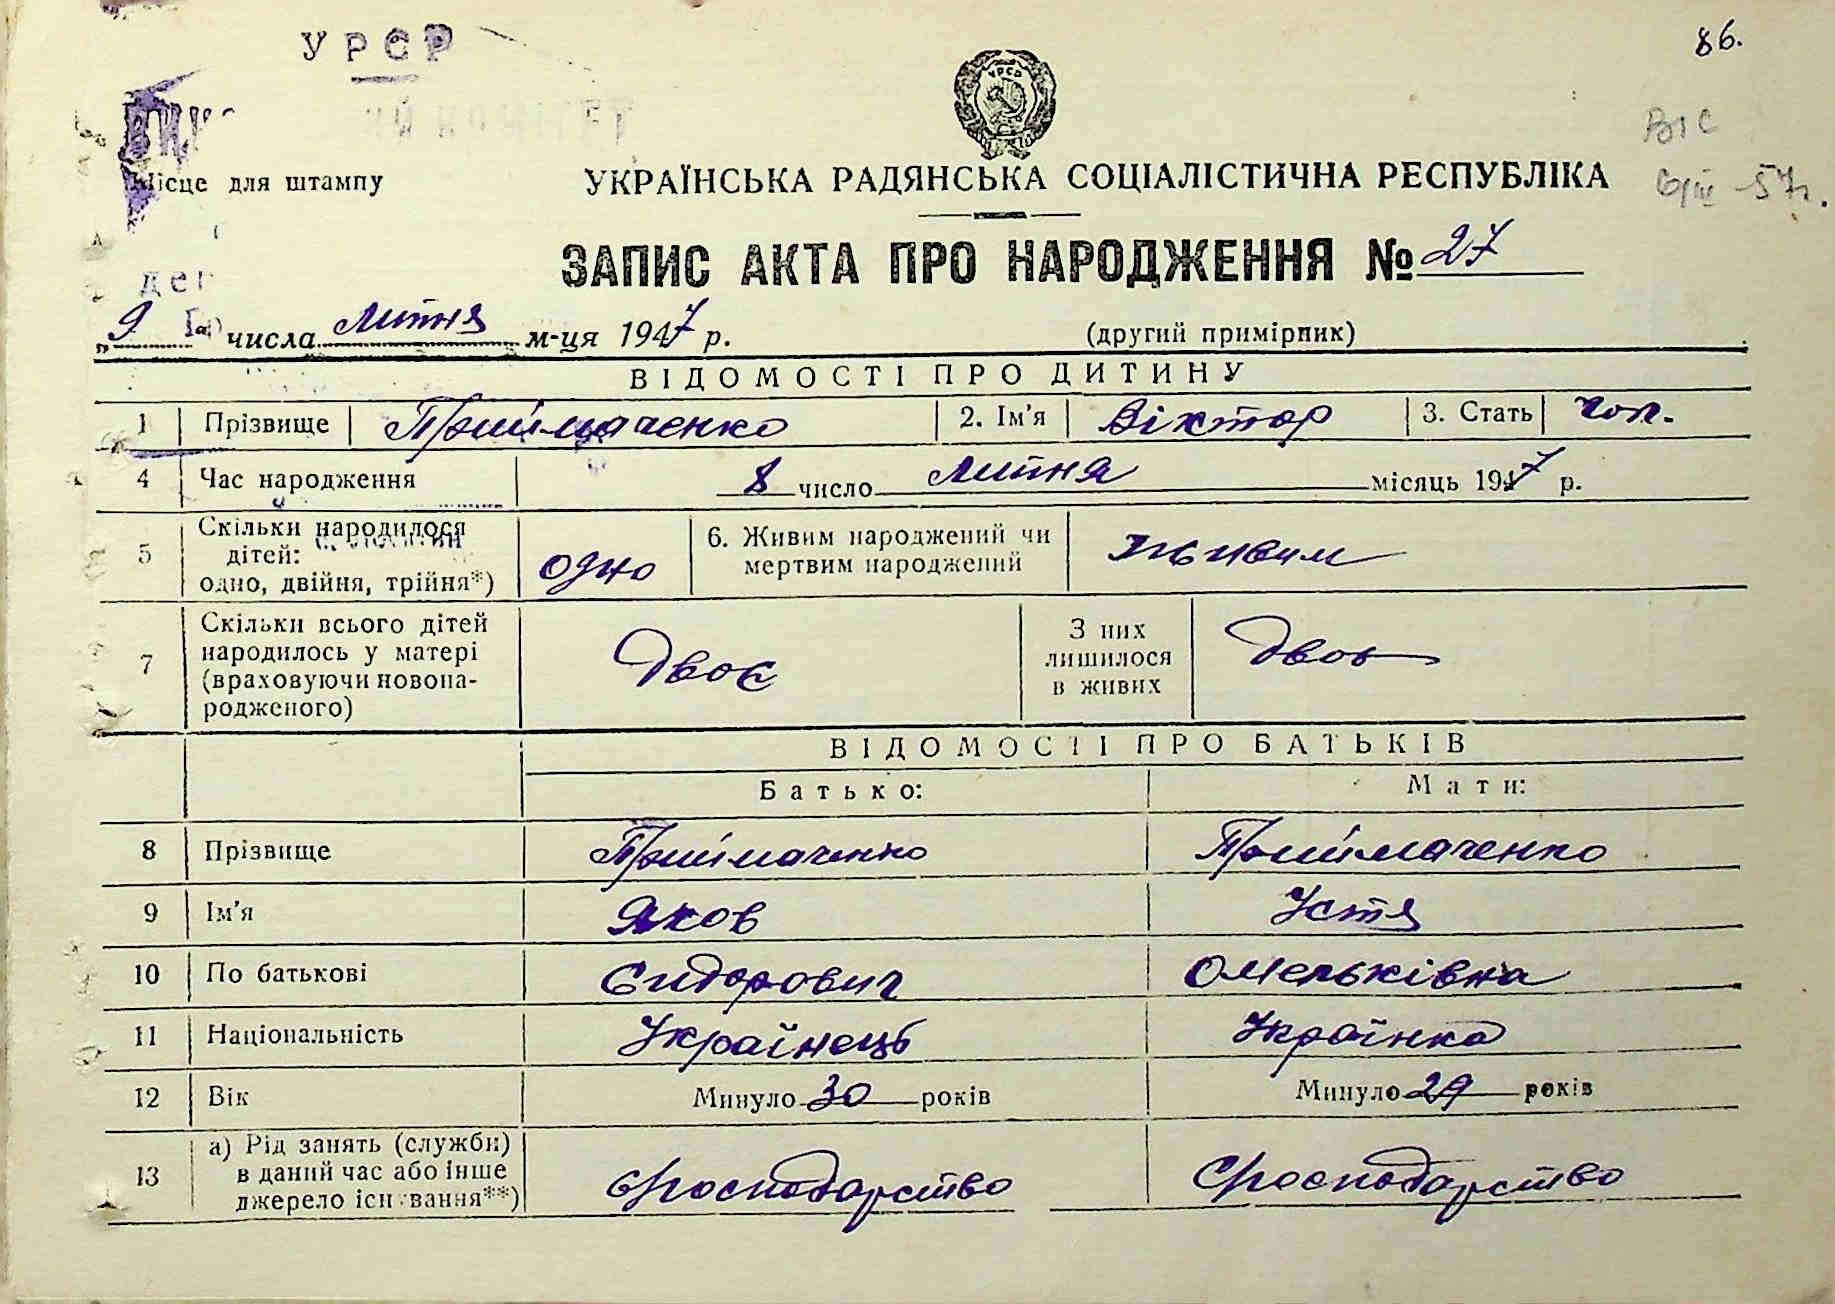 УРСР
86.
УРСР
Місце для штампу
УКРАЇНСЬКА РАДЯНСЬКА СОЦІАЛІСТИЧНА РЕСПУБЛІКА
ЗАПИС АКТА ПРО НАРОДЖЕННЯ № 27
„9 числа липня м-ця 1947 р.
(другий примірник)
ВІДОМОСТІ ПРО ДИТИНУ
1 Прізвище Приймаченко 2. Ім'я Віктор 3. Стать чол.
4 Час народження 8 число липня місяць 1947 р.
5 Скільки народилося
дітей:
одно, двійня, трійня*) одно
6. Живим народжений чи
мертвим народжений живим
7 Скільки всього дітей
народилось у матері
(враховуючи новона-
родженого) двоє
З них
лишилося
в живих двоє
ВІДОМОСТІ ПРО БАТЬКІВ
Батько: Мати:
8 Прізвище Приймаченко Приймаченко
9 Ім'я Яков Устя
10 По батькові Сидорович Омельківна
11 Національність Українець Українка
12 Вік Минуло 30 років Минуло 29 років
13 а) Рід занять (служби)
в даний час або інше
джерело існування**)